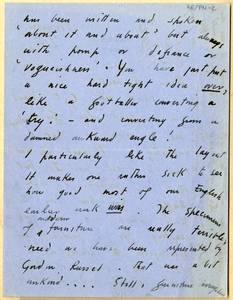 has been written and spoken
'about it and about' but always
with pomp or defiance or
'vogueishness'. You have just put
a nice hard tight idea over,
like a footballer converting a
'try'! - and converting from a
damned awkward angle!
I particularly like the layout
It makes one rather sick to see
how good most of our English
early work was. The specimens
of modern furniture are really terrible:
need we have been represented by
Gordon Russel. That was a bit
unkind.... Still, furniture